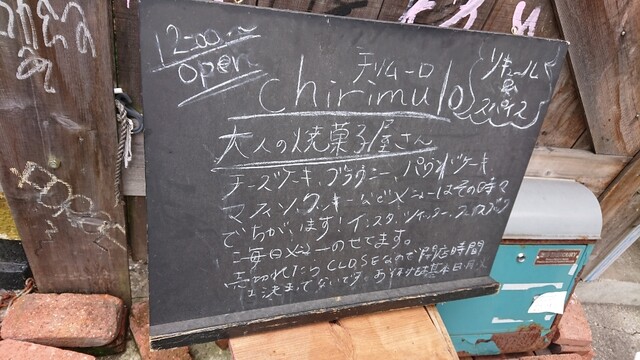 12:00〜
open
チリムーロ
chirimulo
リキュール
&
スパイス
大人の焼菓子屋さん
チーズケーキ、ブラウニー、パウンドケーキ
マフィン、クッキーなどメニューはその時々
でちがいます!インスタ、ツイッター、フェイスブック
に毎日メニューのせてます。
売切れたらCLOSEなので閉店時間
は決まってないです。